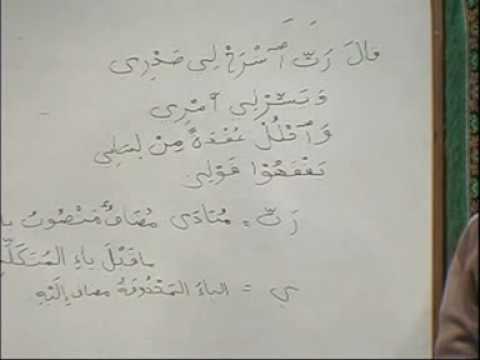 قالَ رَبِّ ٱشْرَحْ لِي صَدْرِي
وَيَسِّرْ لِي أَمْرِي
وَٱحْلُلْ عُقْدَةً مِنْ لِسَانِي
يَفْقَهُوا قَوْلِي
رَبِّ = مُنَادَى مُضَافٌ مَنْصُوبٌ
مَاقَبْلَ يَاءِ المُتَكَلِّمِ
ي = الياء المَحْذُوفَةُ مضاف إِلَيْهِ